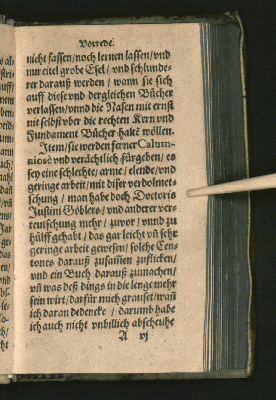 Vorrede.
nicht fassen/noch lernen lassen/vnd
nur eitel grobe Esel/ vnd schlunde-
rer darauß werden / wann sie sich
auff diese vnd dergleichen Bücher
verlassen/vnnd die Nasen mit ernst
nit selbst vber die rechten Kern vnd
Fundament Bücher haltē wöllen.
Item/sie werden ferner Calum-
niosè vnd verächtlich fürgeben/ es
sey eine schlechte/ arme/ elende/ vnd
geringe arbeit/mit diser verdolmet-
schung / man habe doch Doctoris
Justini Göblers/ vnd anderer ver-
teutschung mehr / zuvor / vnnd zu
hülff gehabt / das gar leicht vñ sehr
geringe arbeit gewesen/ solche Cen-
tones darauß zusassien zuflicken/
vnd ein Buch darauß zumachen/
vñ was deß dings in die lenge mehr
sein wirt/darfür mich grauset/wañ
ich daran dedencke / darumb habe
ich auch nicht vnbillich abscheuhe
A vj